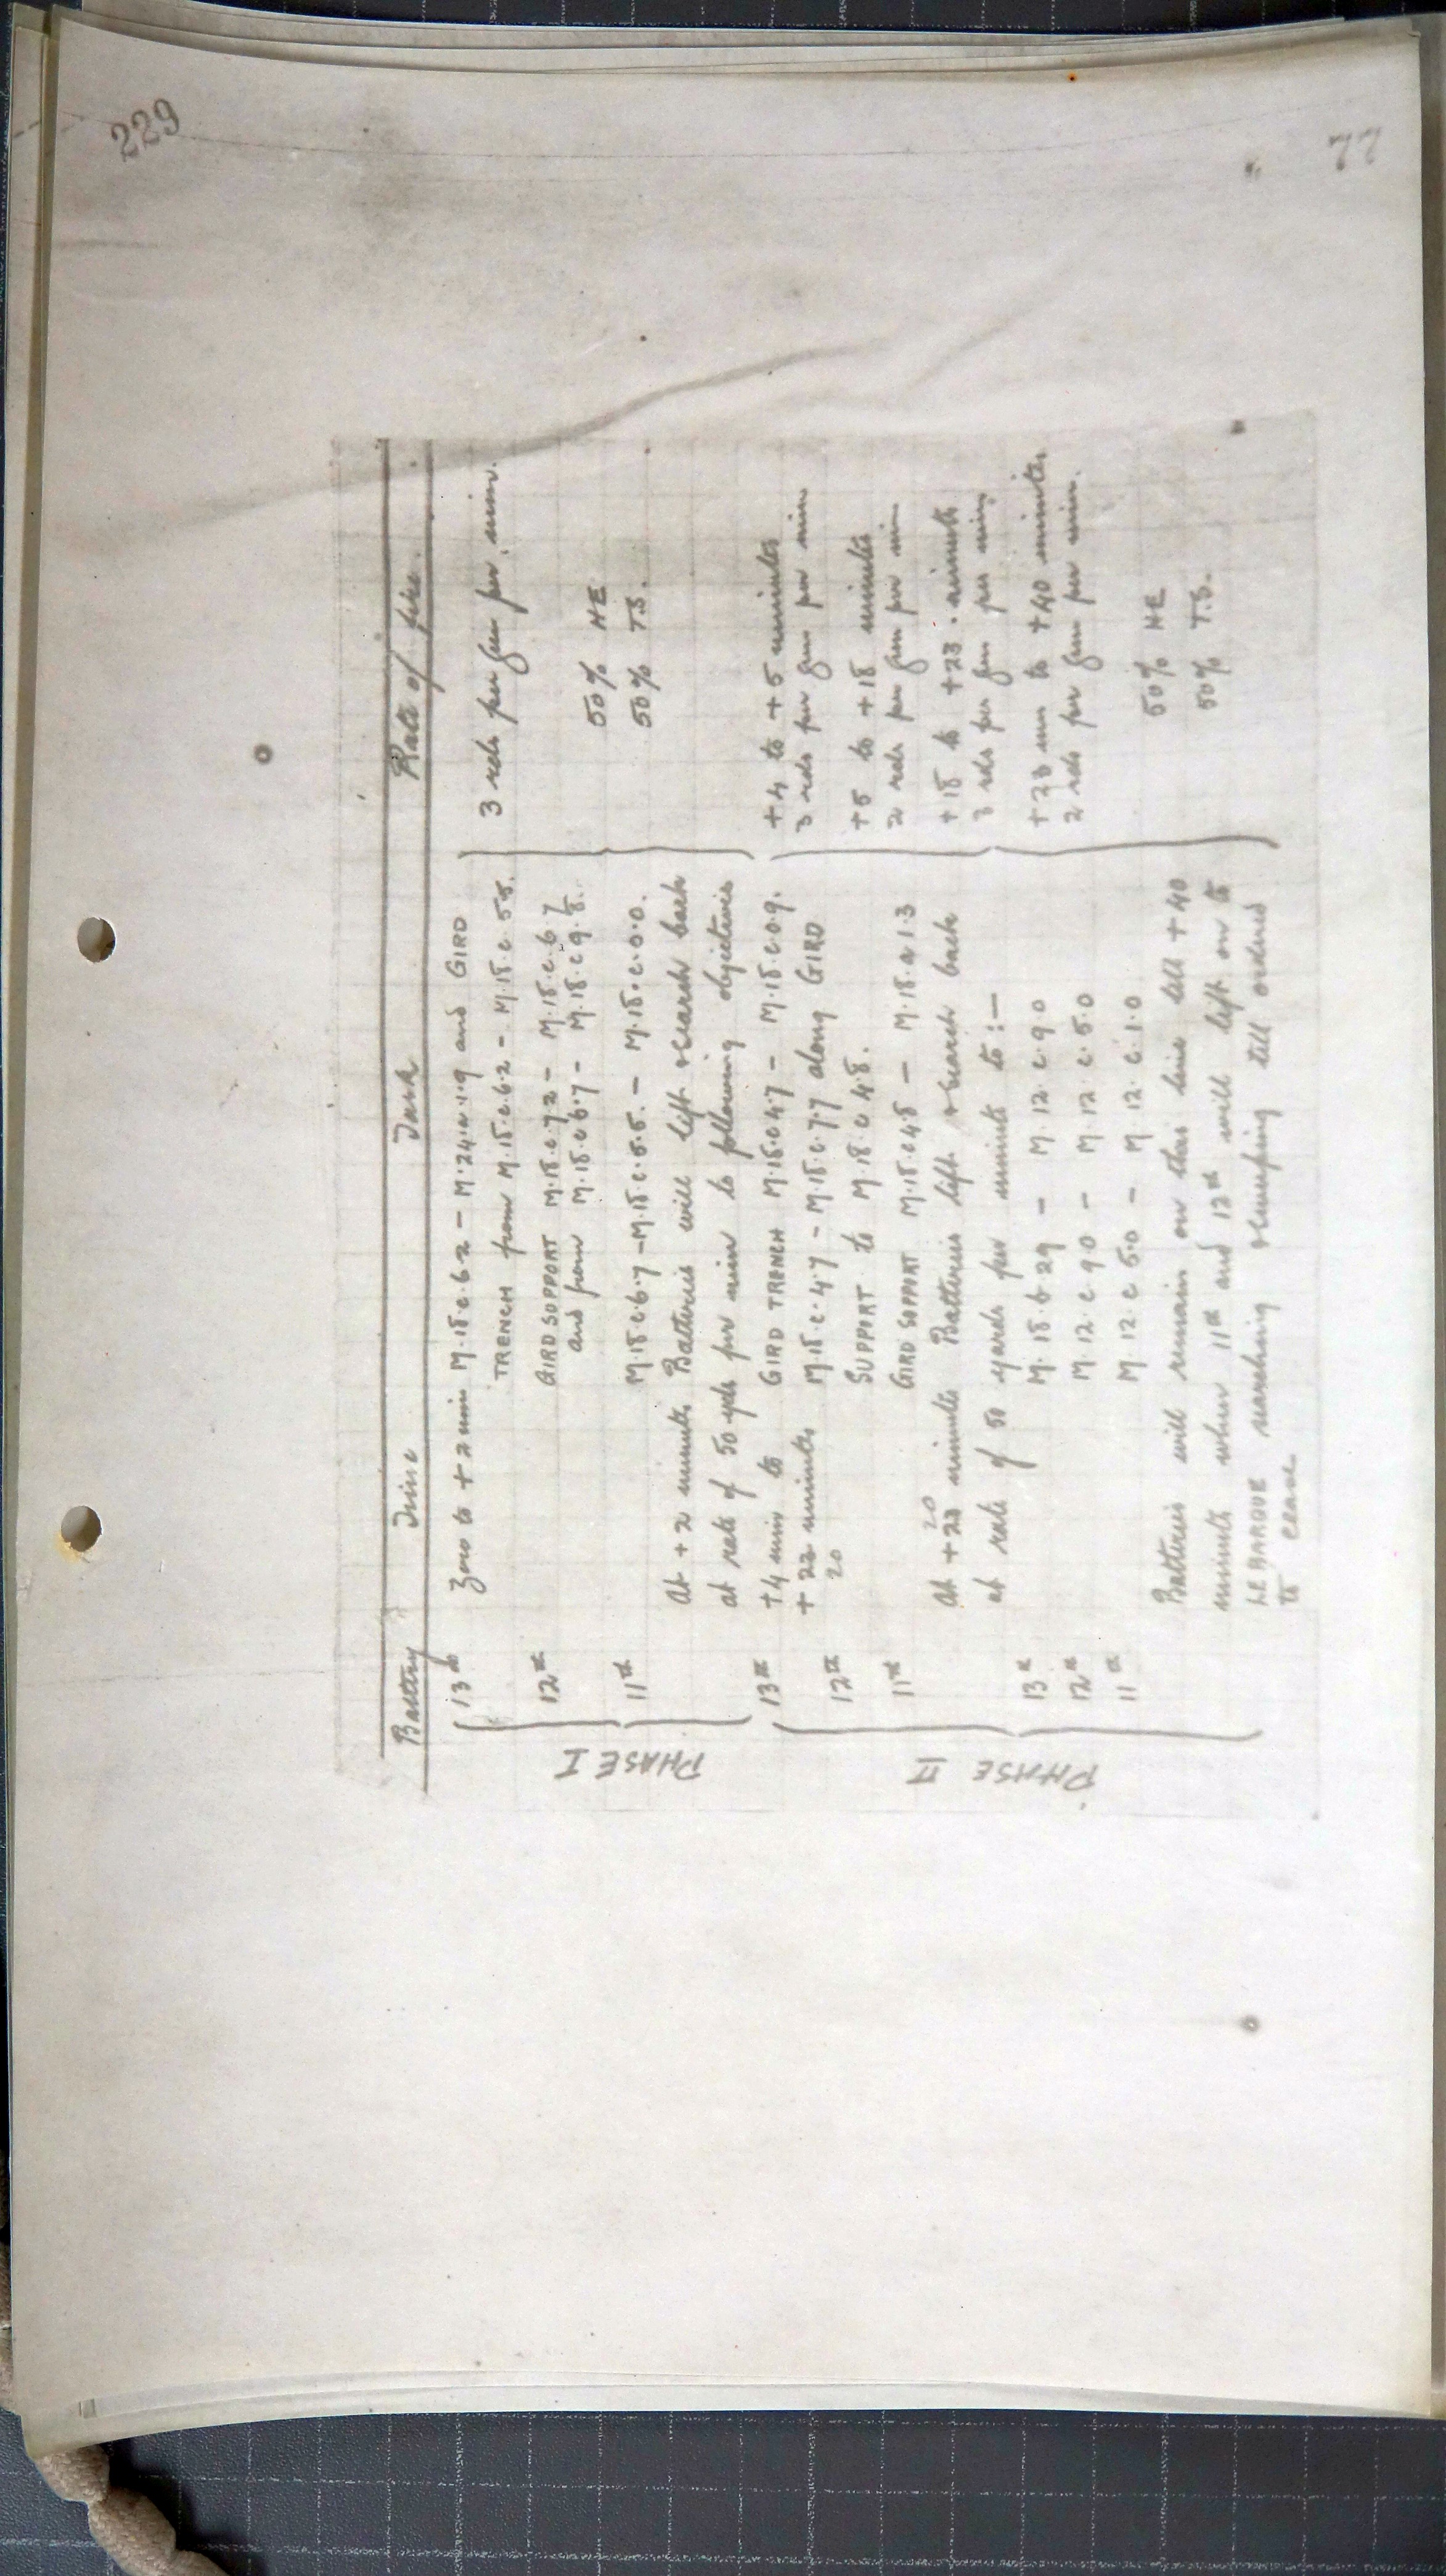 229
77
Battery Time Task Rate of fire.
PHASE I
13th Zero to + 2 min M.18.c.6.2 – M.24.a.1.9 and GIRD
TRENCH from M.18.c.6.2 – M.18.c.5.5.
3 rds per gun per min.
12th GIRD SUPPORT M.18.c.7.2 – M.18.c.6.7
and from M.18.c.6.7 – M.18.c.9.8.
50% HE
50% T.S.
11th M.18.c.6.7 – M.18.c.5.5. – M.18.c.0.0.
At + 2 minutes Batteries will lift & search back
at rate of 50 yds per min to following objectives
PHASE II
13th +4 min to GIRD TRENCH M.18.c.4.7 – M.18.c.0.9.
+ 22 minutes
20
12th M.18.c.4.7 – M.18.c.7.7 along GIRD
SUPPORT to M.18.c.4.8.
11th GIRD SUPPORT M.18.c.4.8 – M.18.a.1.3
+4 to +5 minutes
3 rds per gun per min
+5 to +18 minutes
2 rds per gun per min
+18 to +23 minutes
3 rds per gun per min
+23 min to +40 minutes
2 rds per gun per min.
50% HE
50% T.S.
20
At +23 minutes Batteries lift & search back
at rate of 50 yards per minute to :—
13th M.18.b.2.9 – M.12.c.9.0
12th M.12.c.9.0 – M.12.c.5.0
11th M.12.c.5.0 – M.12.c.1.0
Batteries will remain on this line till +40
minutes when 11th and 12th will lift on to
LE BARQUE searching & sweeping till ordered
to cease